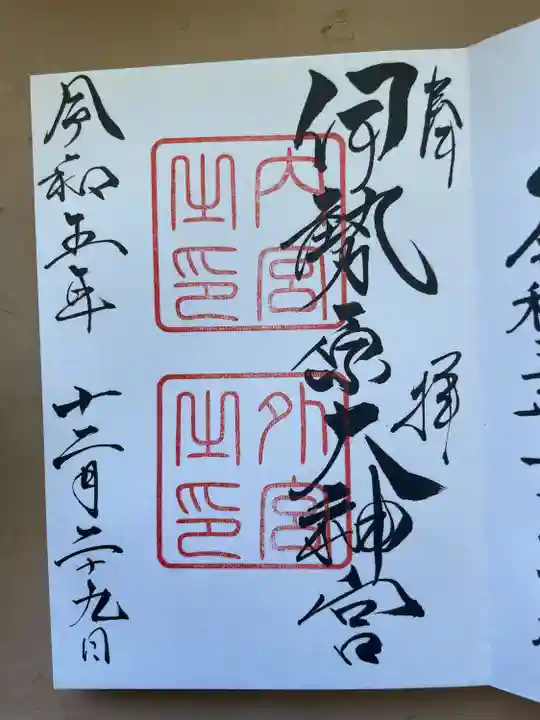 奉拝
伊勢原大神宮
内宮
之印
外宮
之印
令和五年 十二月二十九日